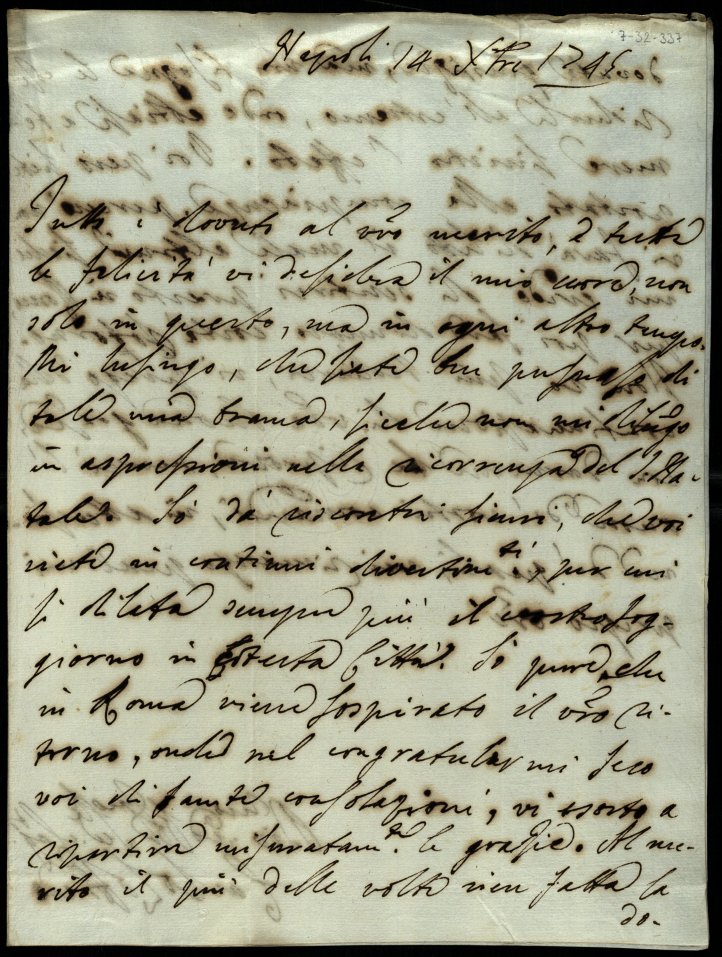 7-32-337
Napoli 14 Xbre 1745
Tutto è dovuto al vrõ merito, e tutte
le felicità vi desidera il mio core, non
solo in questo, ma in ogni altro tempo.
Mi lusingo, che siate ben persuaso di
tale mia brama, sicche non mi dilūgo
in aspressioni nella ricorrenza del S. Na-
tale. So da riscontri sicuri, che voi
siete in continui divertimeti, per cui
si dilata sempre più il vostro sog-
giorno in cotesta Città. So pure, che
in Roma viene sospirato il vrõ ri-
torno, onde nel congratularmi seco
voi di tante consolazioni, vi esorto a
ripartire misuratamte. le grazie. Al me-
rito il più delle volte vien fatta la
do-